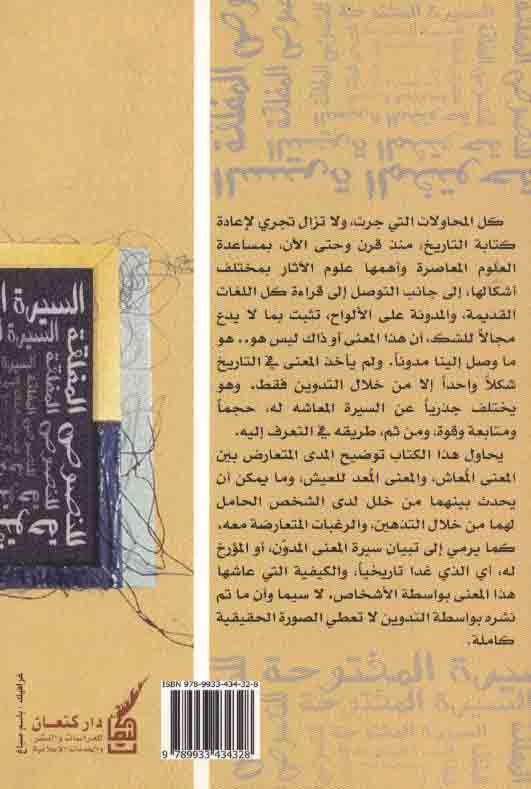 السيرة المفتوحة
للنصوص المغلقة
كل المحاولات التي جرت، ولا تزال تجري لإعادة
كتابة التاريخ، منذ قرن وحتى الآن، بمساعدة
العلوم المعاصرة وأهمها علوم الآثار بمختلف
أشكالها، إلى جانب التوصل إلى قراءة كل اللغات
القديمة، والمدونة على الألواح، تثبت بما لا يدع
مجالاً للشك، أن هذا المعنى أو ذاك ليس هو.. هو
ما وصل إلينا مدوناً. ولم يأخذ المعنى في التاريخ
شكلاً واحداً إلا من خلال التدوين فقط. وهو
يختلف جذرياً عن السيرة المعاشه له، حجماً
ومتابعة وقوة، ومن ثم، طريقه في التعرف إليه.
يحاول هذا الكتاب توضيح المدى المتعارض بين
المعنى المُعاش، والمعنى المُعد للعيش، وما يمكن أن
يحدث بينهما من خلل لدى الشخص الحامل
لهما من خلال التذهين، والرغبات المتعارضة معه،
كما يرمي إلى تبيان سيرة المعنى المدوّن، أو المؤرخ
له، أي الذي غدا تاريخياً، والكيفية التي عاشها
هذا المعنى بواسطة الأشخاص. لا سيما وأن ما تم
نشره بواسطة التدوين لا تعطي الصورة الحقيقية
كاملة.
السيرة المفتوحة
ISBN 978-9933-434-32-8
9 789933 434328
دار كنعان
للدراسات والنشر
والخدمات الإعلامية
غرافيك: باسم صباغ